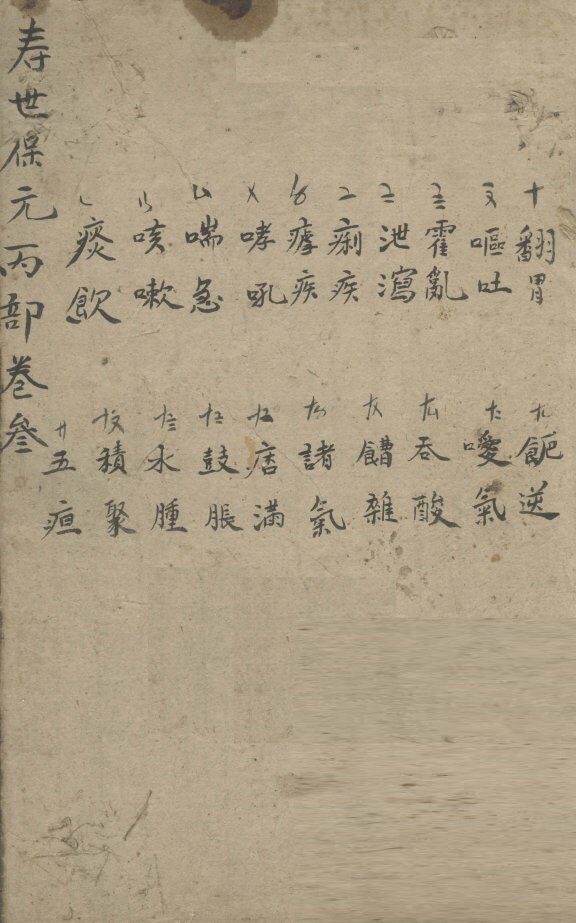 寿世保元丙部巻叁
痰飲
咳嗽
喘急
哮吼
瘧疾
痢疾
泄瀉
霍亂
嘔吐
十 翻胃
逆
噯氣
吞酸
雜
諸氣
痞滿
鼓脹
水腫
積聚
廿 五疸